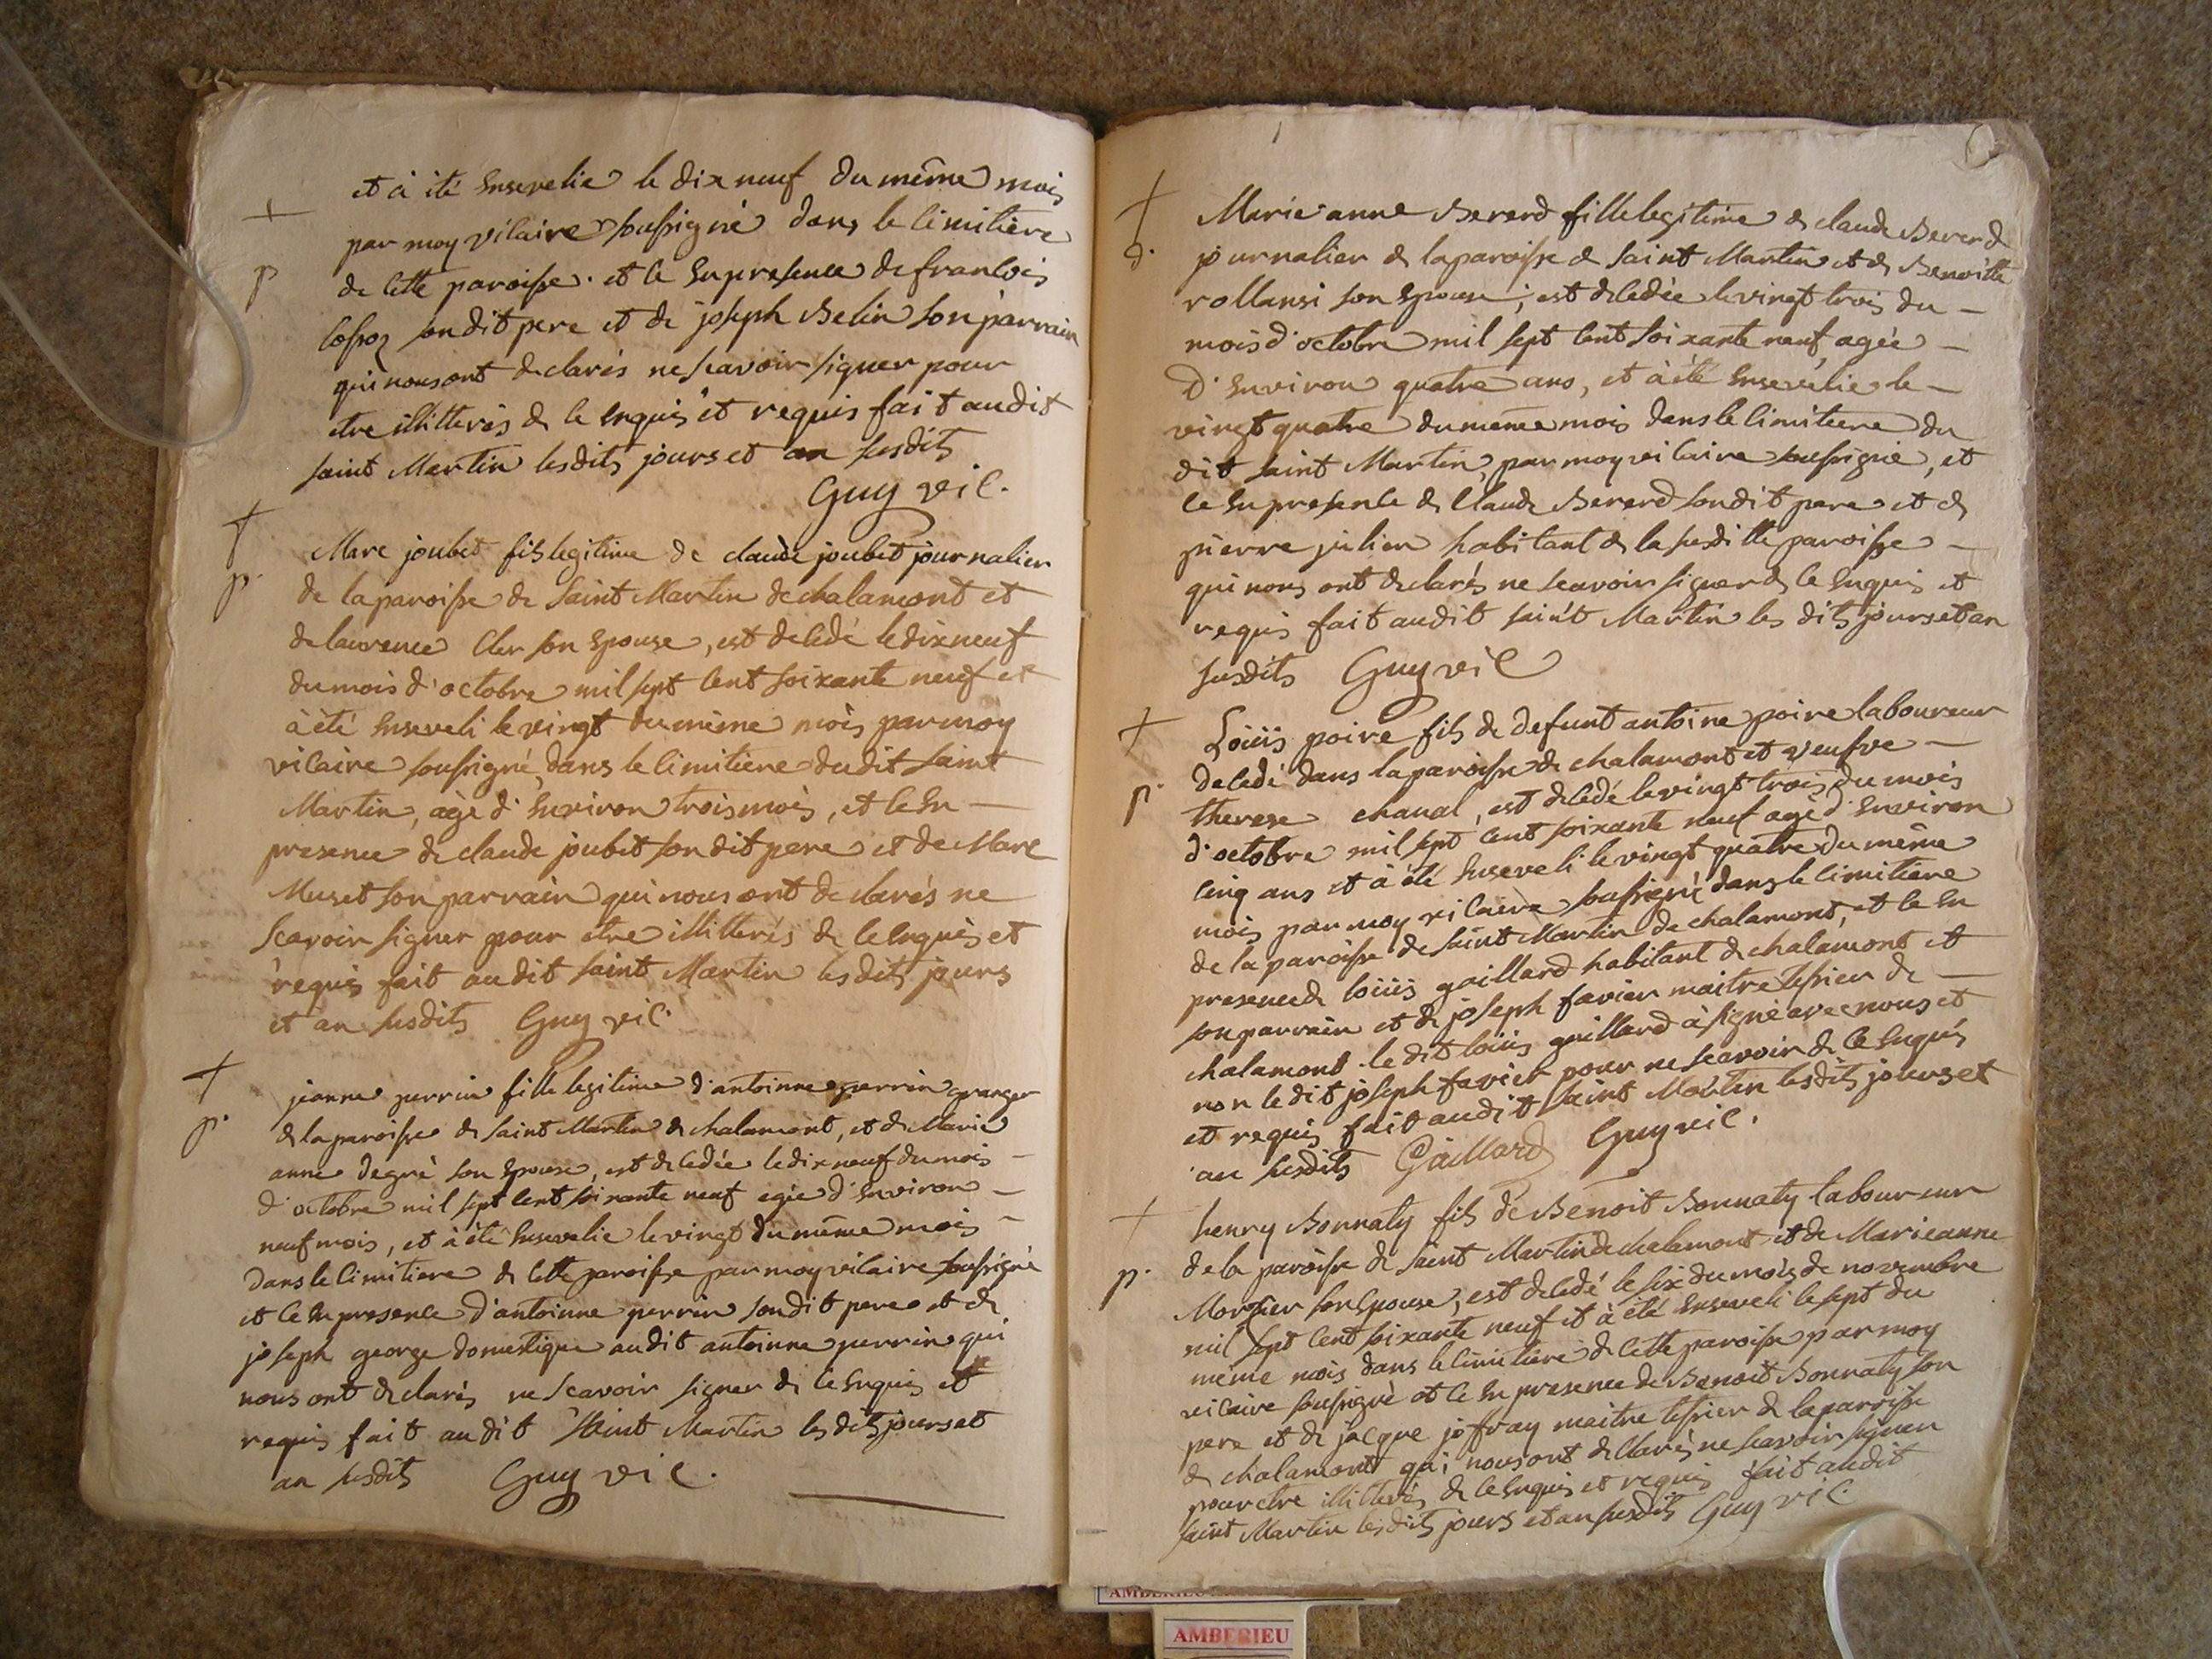 et à été Ensevelie le dix neuf du même mois
par moy vicaire soussigné dans le cimitiere
p
de cette paroisse. et ce En presence de francois
son dit pere et de joseph Belin son parrain
qui nous ont declarés ne scavoir signer pour
etre illitterés de ce Enquis et requis fait audit
saint Martin lesdits jours et an susdits
Guy vic.
Marc joubet fils legitime de claude joubet journalier
p.
de la paroisse de saint Martin de chalamont et
de laurence Cler son Epouse, est decedé le dix neuf
du mois d'octobre mil sept cent soixante neuf et
à été Enseveli le vingt du même mois par moy
vicaire soussigné, dans le cimitiere dudit saint
Martin, agé d'Environ trois mois, et ce En —
presence de claude joubet son dit pere et de Marc
Muset son parrain qui nous ont declarés ne
scavoir signer pour etre illitterés de ce Enquis et
requis fait au dit saint Martin les dits jours
et an susdits Guy vic.
jeanne perrin fille legitime d'antoinne perrin granger
p.
de la paroisse de saint Martin de chalamont, et de Marie
anne degré son Epouse, est decedée le dix neuf du mois —
d'octobre mil sept cent soixante neuf agée d'Environ —
neuf mois, et à été Ensevelie le vingt du même mois —
dans le cimitiere de cette paroisse par moy vicaire soussigné
et ce En presence d'antoinne perrin son dit pere et de
joseph george domestique audit antoinne perrin qui
nous ont declarés ne scavoir signer de ce Enquis et
requis fait au dit saint Martin les dits jours et
an susdits Guy vic.
Marie anne Bererd fille legitime de claude Bererd
d.
journalier de la paroisse de saint Martin et de Benoitte
rollansi son Epouse, est decedée le vingt trois du —
mois d'octobre mil sept cent soixante neuf, agée —
d'Environ quatre ans, et à été Ensevelie le —
vingt quatre du meme mois dans le cimitiere du
dit saint Martin, par moy vicaire soussigné, et
ce En presence de Claude Bererd son dit pere et de
pierre julien habitant de la susditte paroisse —
qui nous ont declarés ne scavoir signer de ce Enquis et
requis fait audit saint Martin les dits jours et an
susdits Guy vic
Loüis poire fils de defunt antoine poire laboureur
decedé dans la paroisse de chalamont et veufve —
p.
therese chanal, est decedé le vingt trois du mois
d'octobre mil sept cent soixante neuf agé d'Environ
cinq ans et à été Enseveli le vingt quatre du même
mois par moy vicaire soussigné dans le cimitiere
de la paroisse de saint Martin de chalamont, et ce En
presence de loüis gaillard habitant de chalamont et
son parrain et de joseph favier maitre tessier de —
chalamont. le dit loüis gaillard à signé avec nous et
non le dit joseph favier pour ne scavoir de ce Enquis
et requis fait audit saint Martin lesdits jours et
an susdits Gaillard Guy vic.
henry Bonnaty fils de Benoit Bonnaty laboureur
de la paroisse de saint Martin de chalamont et de Marie anne
p.
Mortier son Epouse, est decedé le six du mois de novembre
mil sept cent soixante neuf et à été Enseveli le sept du
même mois dans le cimitiere de cette paroisse par moy
vicaire soussigné et ce En presence de Benoit Bonnaty son
pere et de jacque jofray maitre tessier de la paroisse
de chalamont qui nous ont declarés ne scavoir signer
pour etre illitterés de ce Enquis et requis fait audit
saint Martin les dits jours et an susdits Guy vic.
AMBERIEU